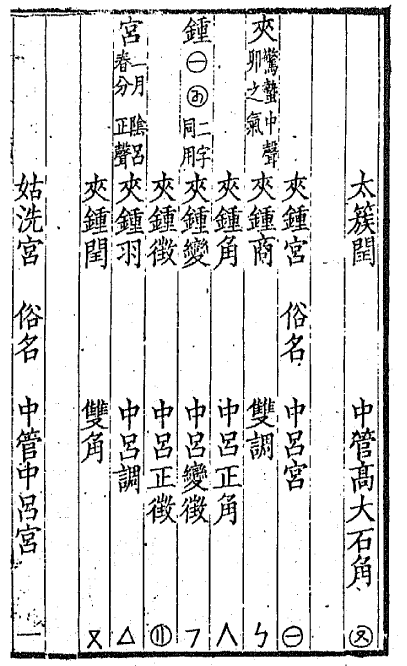 太簇閏 中管高大石角
夾鍾宮 俗名 中呂宮 ㊀
夾 驚蟄中聲 卯之氣 夾鍾商 雙調 ㄣ
夾鍾角 中呂正角 人
鍾 ㊀ 二字同用 夾鍾變 中呂變徵 フ
夾鍾徵 中呂正徵 ⑪
宮 二月 陰呂 春分 正聲 夾鍾羽 中呂調 △
夾鍾閏 雙角 ㄡ
姑洗宮 俗名 中管中呂宮 一